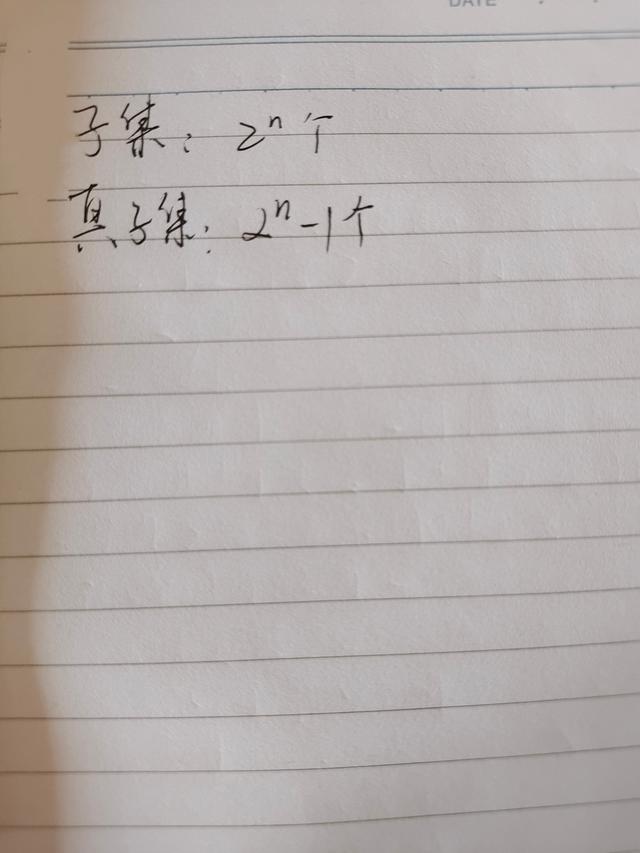 DATE
子集：2ⁿ个
真子集：2ⁿ-1个